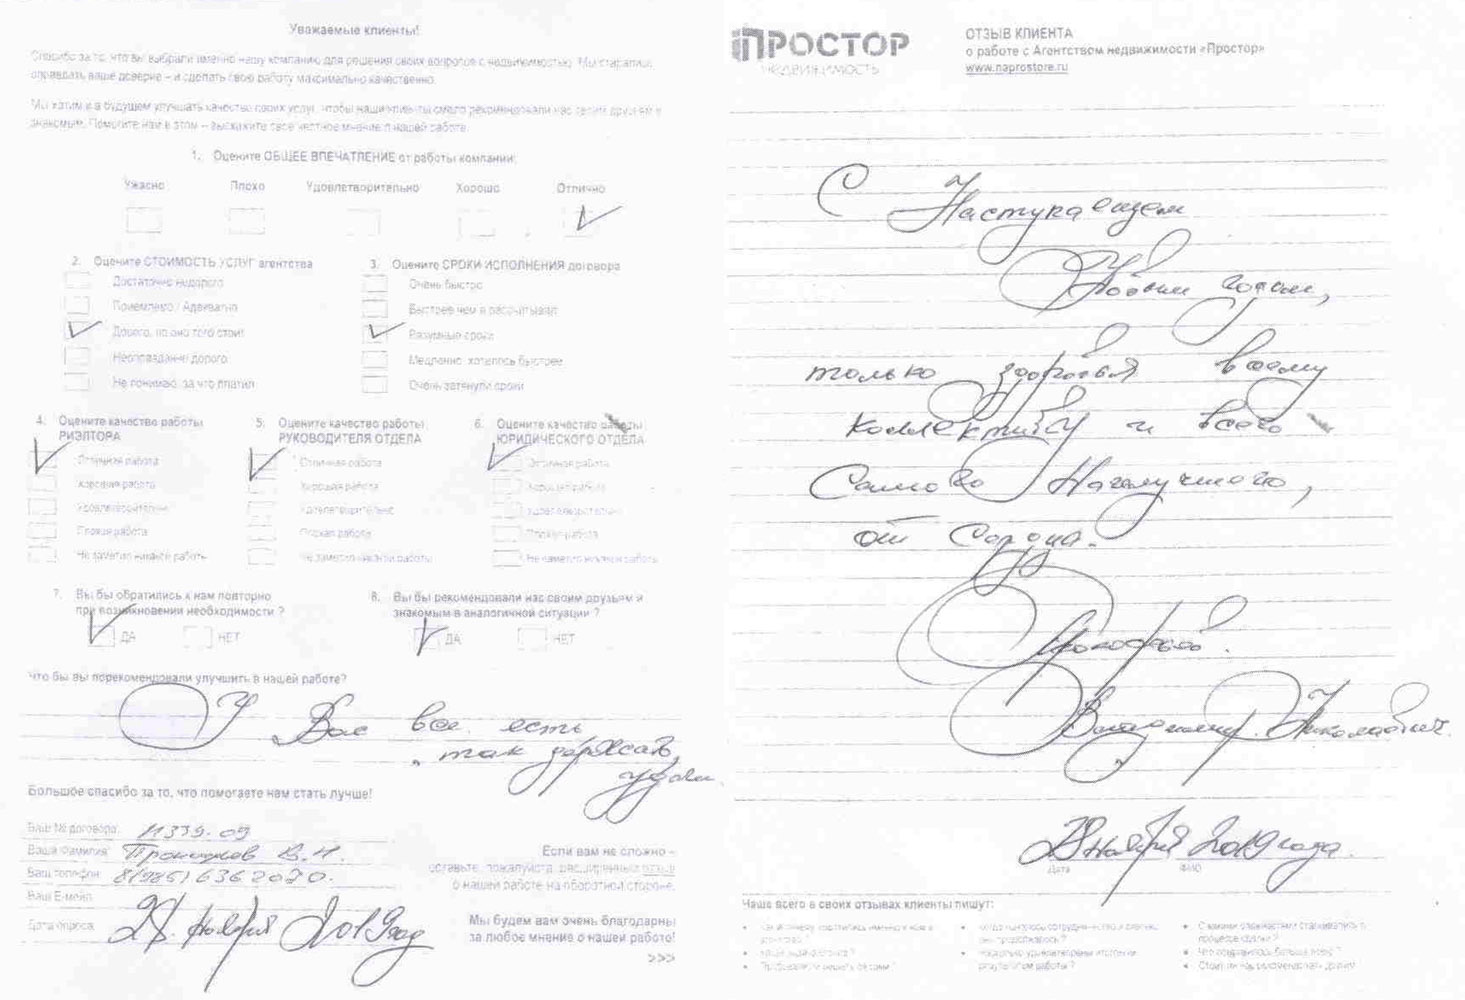 Уважаемые клиенты!
Спасибо за то, что вы выбрали именно нашу компанию для решения своих вопросов с недвижимостью. Мы старались
оправдать ваше доверие – и сделать свою работу максимально качественно.
Мы хотим и в будущем улучшать качество своих услуг, чтобы наши клиенты смело рекомендовали нас своим друзьям и
знакомым. Помогите нам в этом – выскажите свое честное мнение о нашей работе.
1. Оцените ОБЩЕЕ ВПЕЧАТЛЕНИЕ от работы компании:
Ужасно Плохо Удовлетворительно Хорошо Отлично
2. Оцените СТОИМОСТЬ УСЛУГ агентства
Достаточно недорого
Приемлемо / Адекватно
Дорого, но оно того стоит
Неоправданно дорого
Не понимаю, за что платил
3. Оцените СРОКИ ИСПОЛНЕНИЯ договора
Очень быстро
Быстрее чем я рассчитывал
Разумные сроки
Медленно, хотелось быстрее
Очень затянули сроки
4. Оцените качество работы
РИЭЛТОРА
Отличная работа
Хорошая работа
Удовлетворительно
Плохая работа
Не заметил никакой работы
5. Оцените качество работы
РУКОВОДИТЕЛЯ ОТДЕЛА
Отличная работа
Хорошая работа
Удовлетворительно
Плохая работа
Не заметил никакой работы
6. Оцените качество работы
ЮРИДИЧЕСКОГО ОТДЕЛА
Отличная работа
Хорошая работа
Удовлетворительно
Плохая работа
Не заметил никакой работы
7. Вы бы обратились к нам повторно
при возникновении необходимости ?
ДА НЕТ
8. Вы бы рекомендовали нас своим друзьям и
знакомым в аналогичной ситуации ?
ДА НЕТ
Что бы вы порекомендовали улучшить в нашей работе?
У Вас все есть
так держать,
удачи
Большое спасибо за то, что помогаете нам стать лучше!
Ваш № договора: 11339-09
Ваша Фамилия: Прокофьев В.Н.
Ваш телефон: 8(985)6362070.
Ваш E-мейл:
Дата опроса: 28. Ноября 2019 год
Если вам не сложно –
оставьте, пожалуйста, расширенный отзыв
о нашей работе на оборотной стороне.
Мы будем вам очень благодарны
за любое мнение о нашей работе!
>>>
ПРОСТОР
НЕДВИЖИМОСТЬ
ОТЗЫВ КЛИЕНТА
о работе с Агентством недвижимости «Простор»
www.naprostore.ru
С Наступающем
Новым годом,
только здоровья всему
коллективу и всего
Самого Наилучшого,
от
Прокофьев.
Владимир. Николаевич.
28 Ноября 2019 года.
Дата ФИО
Чаще всего в своих отзывах клиенты пишут: